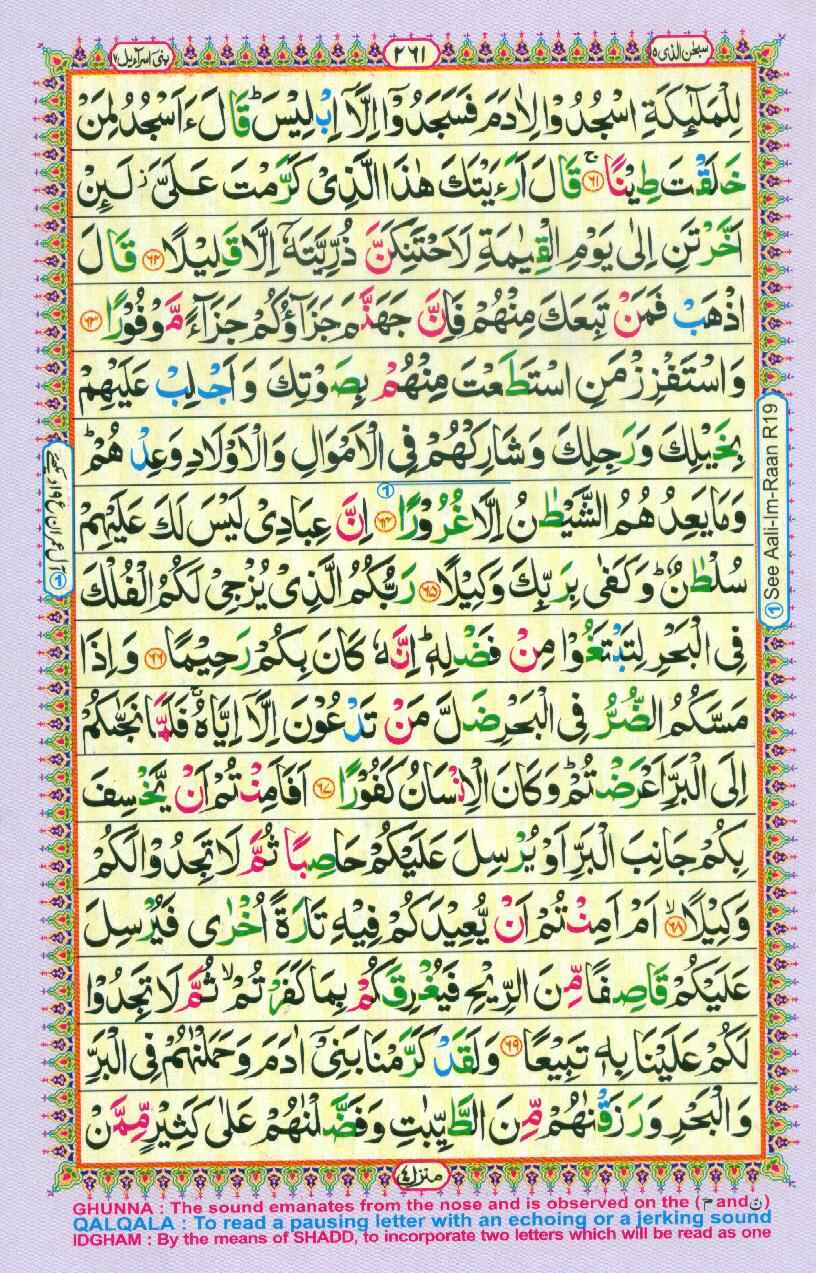 بنی اسرآءیل ۷
۲۶۱
سبحٰن الذی ۱۵
لِلْمَلٰٓئِكَةِ اسْجُدُوْا لِاٰدَمَ فَسَجَدُوْۤا اِلَّاۤ اِبْلِیْسَ ؕ قَالَ ءَاَسْجُدُ لِمَنْ
خَلَقْتَ طِیْنًا ۚ۝۶۱ قَالَ اَرَءَیْتَكَ هٰذَا الَّذِیْ كَرَّمْتَ عَلَیَّ ؗ لَىِٕنْ
اَخَّرْتَنِ اِلٰی یَوْمِ الْقِیٰمَةِ لَاَحْتَنِكَنَّ ذُرِّیَّتَهٗۤ اِلَّا قَلِیْلًا ۝۶۲ قَالَ
اذْهَبْ فَمَنْ تَبِعَكَ مِنْهُمْ فَاِنَّ جَهَنَّمَ جَزَآؤُكُمْ جَزَآءً مَّوْفُوْرًا ۝۶۳
وَ اسْتَفْزِزْ مَنِ اسْتَطَعْتَ مِنْهُمْ بِصَوْتِكَ وَ اَجْلِبْ عَلَیْهِمْ
بِخَیْلِكَ وَ رَجِلِكَ وَ شَارِكْهُمْ فِی الْاَمْوَالِ وَ الْاَوْلَادِ وَعِدْهُمْ ؕ
وَ مَا یَعِدُهُمُ الشَّیْطٰنُ اِلَّا غُرُوْرًا ۝۶۴ اِنَّ عِبَادِیْ لَیْسَ لَكَ عَلَیْهِمْ
سُلْطٰنٌ ؕ وَ كَفٰی بِرَبِّكَ وَكِیْلًا ۝۶۵ رَبُّكُمُ الَّذِیْ یُزْجِیْ لَكُمُ الْفُلْكَ
فِی الْبَحْرِ لِتَبْتَغُوْا مِنْ فَضْلِهٖ ؕ اِنَّهٗ كَانَ بِكُمْ رَحِیْمًا ۝۶۶ وَ اِذَا
مَسَّكُمُ الضُّرُّ فِی الْبَحْرِ ضَلَّ مَنْ تَدْعُوْنَ اِلَّاۤ اِیَّاهُ ۚ فَلَمَّا نَجّٰىكُمْ
اِلَی الْبَرِّ اَعْرَضْتُمْ ؕ وَ كَانَ الْاِنْسَانُ كَفُوْرًا ۝۶۷ اَفَاَمِنْتُمْ اَنْ یَّخْسِفَ
بِكُمْ جَانِبَ الْبَرِّ اَوْ یُرْسِلَ عَلَیْكُمْ حَاصِبًا ثُمَّ لَا تَجِدُوْا لَكُمْ
وَكِیْلًا ۙ۝۶۸ اَمْ اَمِنْتُمْ اَنْ یُّعِیْدَكُمْ فِیْهِ تَارَةً اُخْرٰی فَیُرْسِلَ
عَلَیْكُمْ قَاصِفًا مِّنَ الرِّیْحِ فَیُغْرِقَكُمْ بِمَا كَفَرْتُمْ ۙ ثُمَّ لَا تَجِدُوْا
لَكُمْ عَلَیْنَا بِهٖ تَبِیْعًا ۝۶۹ وَ لَقَدْ كَرَّمْنَا بَنِیْۤ اٰدَمَ وَ حَمَلْنٰهُمْ فِی الْبَرِّ
وَ الْبَحْرِ وَ رَزَقْنٰهُمْ مِّنَ الطَّیِّبٰتِ وَ فَضَّلْنٰهُمْ عَلٰی كَثِیْرٍ مِّمَّنْ
① آل عمران ع ۱۹ دیکھئے
① See Aali-Im-Raan R19
منزل ۴
GHUNNA : The sound emanates from the nose and is observed on the (م and ن)
QALQALA : To read a pausing letter with an echoing or a jerking sound
IDGHAM : By the means of SHADD, to incorporate two letters which will be read as one